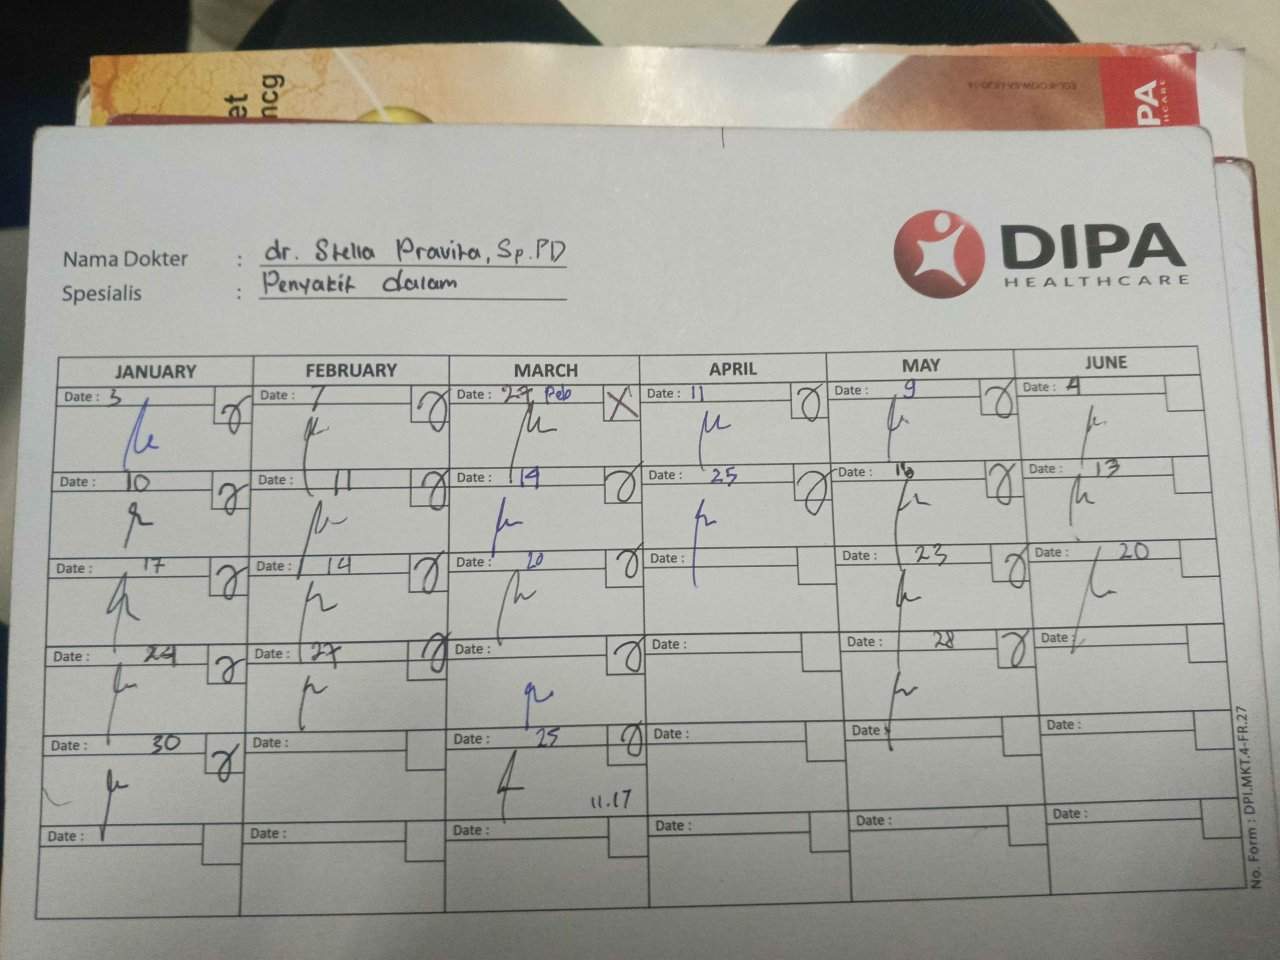 et
mcg
PA
HCARE
Nama Dokter : dr. Stella Pravita, Sp.PD
Spesialis : Penyakit dalam
DIPA
HEALTHCARE
JANUARY FEBRUARY MARCH APRIL MAY JUNE
Date : 3 Date : 7 Date : 27 Peb Date : 11 Date : 9 Date : 4
Date : 10 Date : 11 Date : 14 Date : 25 Date : 16 Date : 13
Date : 17 Date : 14 Date : 20 Date : Date : 23 Date : 20
Date : 24 Date : 27 Date : Date : Date : 28 Date :
Date : 30 Date : Date : 25 Date : Date : Date :
11.17
Date : Date : Date : Date : Date : Date :
No. Form : DPI.MKT.4-FR.27